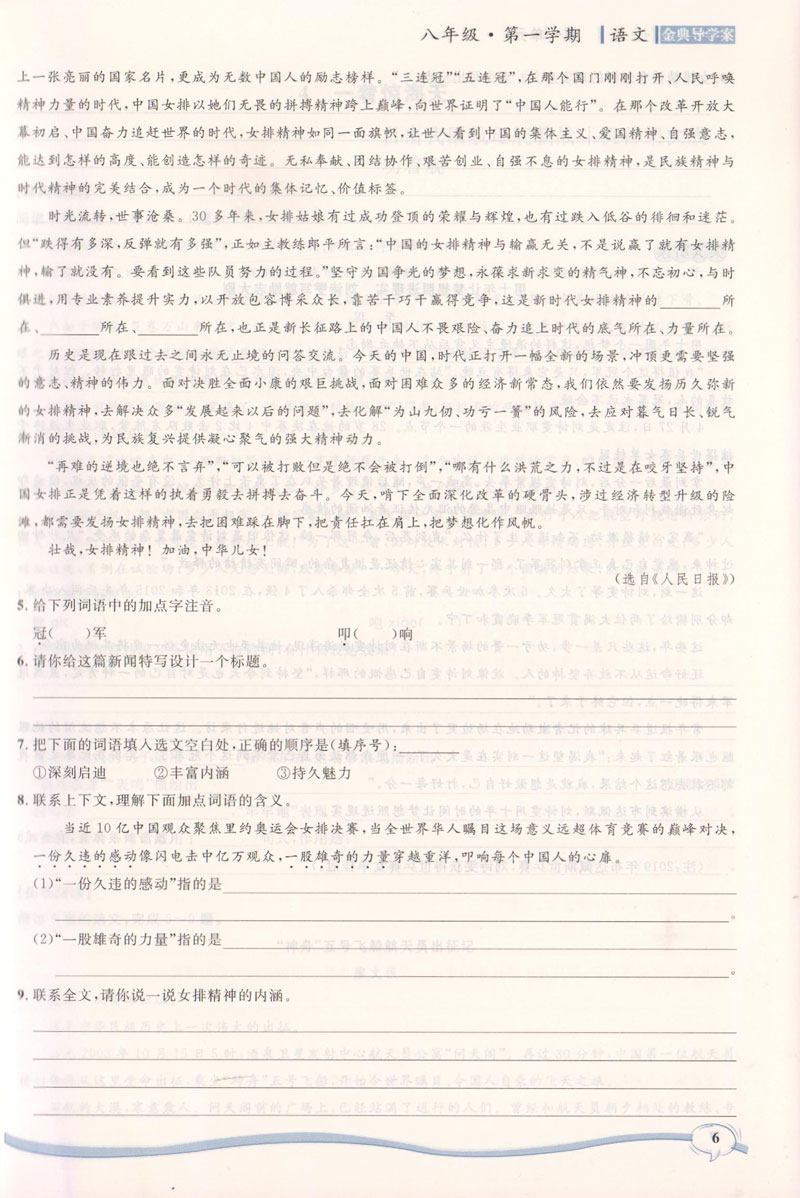 八年级·第一学期 语文 金典导学案
上一张亮丽的国家名片，更成为无数中国人的励志榜样。“三连冠”“五连冠”，在那个国门刚刚打开、人民呼唤
精神力量的时代，中国女排以她们无畏的拼搏精神跨上巅峰，向世界证明了“中国人能行”。在那个改革开放大
幕初启、中国奋力追赶世界的时代，女排精神如同一面旗帜，让世人看到中国的集体主义、爱国精神、自强意志，
能达到怎样的高度、能创造怎样的奇迹。无私奉献、团结协作、艰苦创业、自强不息的女排精神，是民族精神与
时代精神的完美结合，成为一个时代的集体记忆、价值标签。
时光流转，世事沧桑。30多年来，女排姑娘有过成功登顶的荣耀与辉煌，也有过跌入低谷的徘徊和迷茫。
但“跌得有多深，反弹就有多强”，正如主教练郎平所言：“中国的女排精神与输赢无关，不是说赢了就有女排精
神，输了就没有。要看到这些队员努力的过程。”坚守为国争光的梦想，永葆求新求变的精气神，不忘初心，与时
俱进，用专业素养提升实力，以开放包容博采众长，靠苦干巧干赢得竞争，这是新时代女排精神的________所
在、________所在、________所在，也正是新长征路上的中国人不畏艰险、奋力追上时代的底气所在、力量所在。
历史是现在跟过去之间永无止境的问答交流。今天的中国，时代正打开一幅全新的场景，冲顶更需要坚强
的意志、精神的伟力。面对决胜全面小康的艰巨挑战，面对困难众多的经济新常态，我们依然要发扬历久弥新
的女排精神，去解决众多“发展起来以后的问题”，去化解“为山九仞、功亏一篑”的风险，去应对暮气日长、锐气
渐消的挑战，为民族复兴提供凝心聚气的强大精神动力。
“再难的逆境也绝不言弃”，“可以被打败但是绝不会被打倒”，“哪有什么洪荒之力，不过是在咬牙坚持”，中
国女排正是凭着这样的执着勇毅去拼搏去奋斗。今天，啃下全面深化改革的硬骨头，涉过经济转型升级的险
滩，都需要发扬女排精神，去把困难踩在脚下，把责任扛在肩上，把梦想化作风帆。
壮哉，女排精神！加油，中华儿女！
（选自《人民日报》）
5. 给下列词语中的加点字注音。
冠（　　）军　　叩（　　）响
6. 请你给这篇新闻特写设计一个标题。
7. 把下面的词语填入选文空白处，正确的顺序是（填序号）：________
①深刻启迪　②丰富内涵　③持久魅力
8. 联系上下文，理解下面加点词语的含义。
当近10亿中国观众聚焦里约奥运会女排决赛，当全世界华人瞩目这场意义远超体育竞赛的巅峰对决，
一份久违的感动像闪电击中亿万观众，一股雄奇的力量穿越重洋，叩响每个中国人的心扉。
（1）“一份久违的感动”指的是________
________。
（2）“一股雄奇的力量”指的是________
________。
9. 联系全文，请你说一说女排精神的内涵。
6